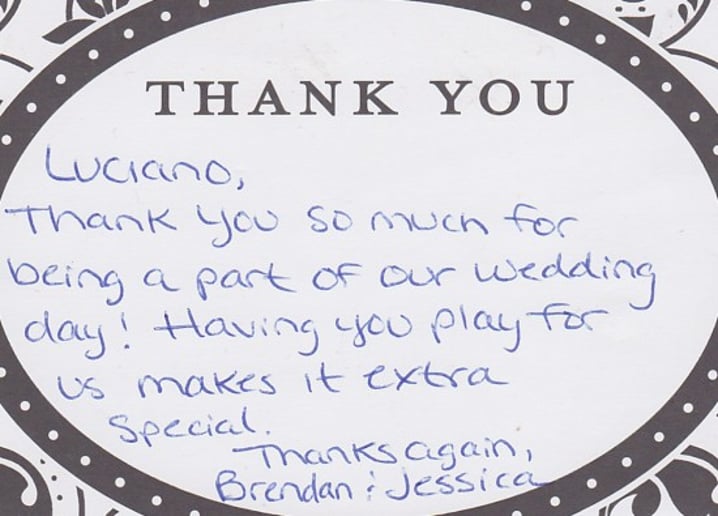 THANK YOU
Luciano,
Thank you so much for
being a part of our wedding
day! Having you play for
us makes it extra
special.
Thanks again,
Brendan & Jessica